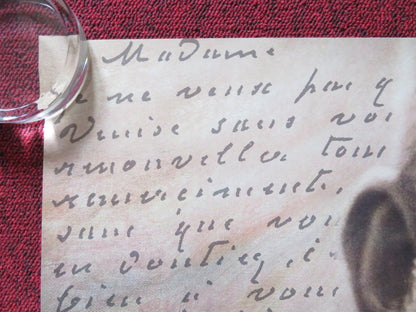 Madame
je ne veux pas q
Venise sans vou
renouveller tous
remerciments,
sans que vou
en doutiez, c
bien à vous